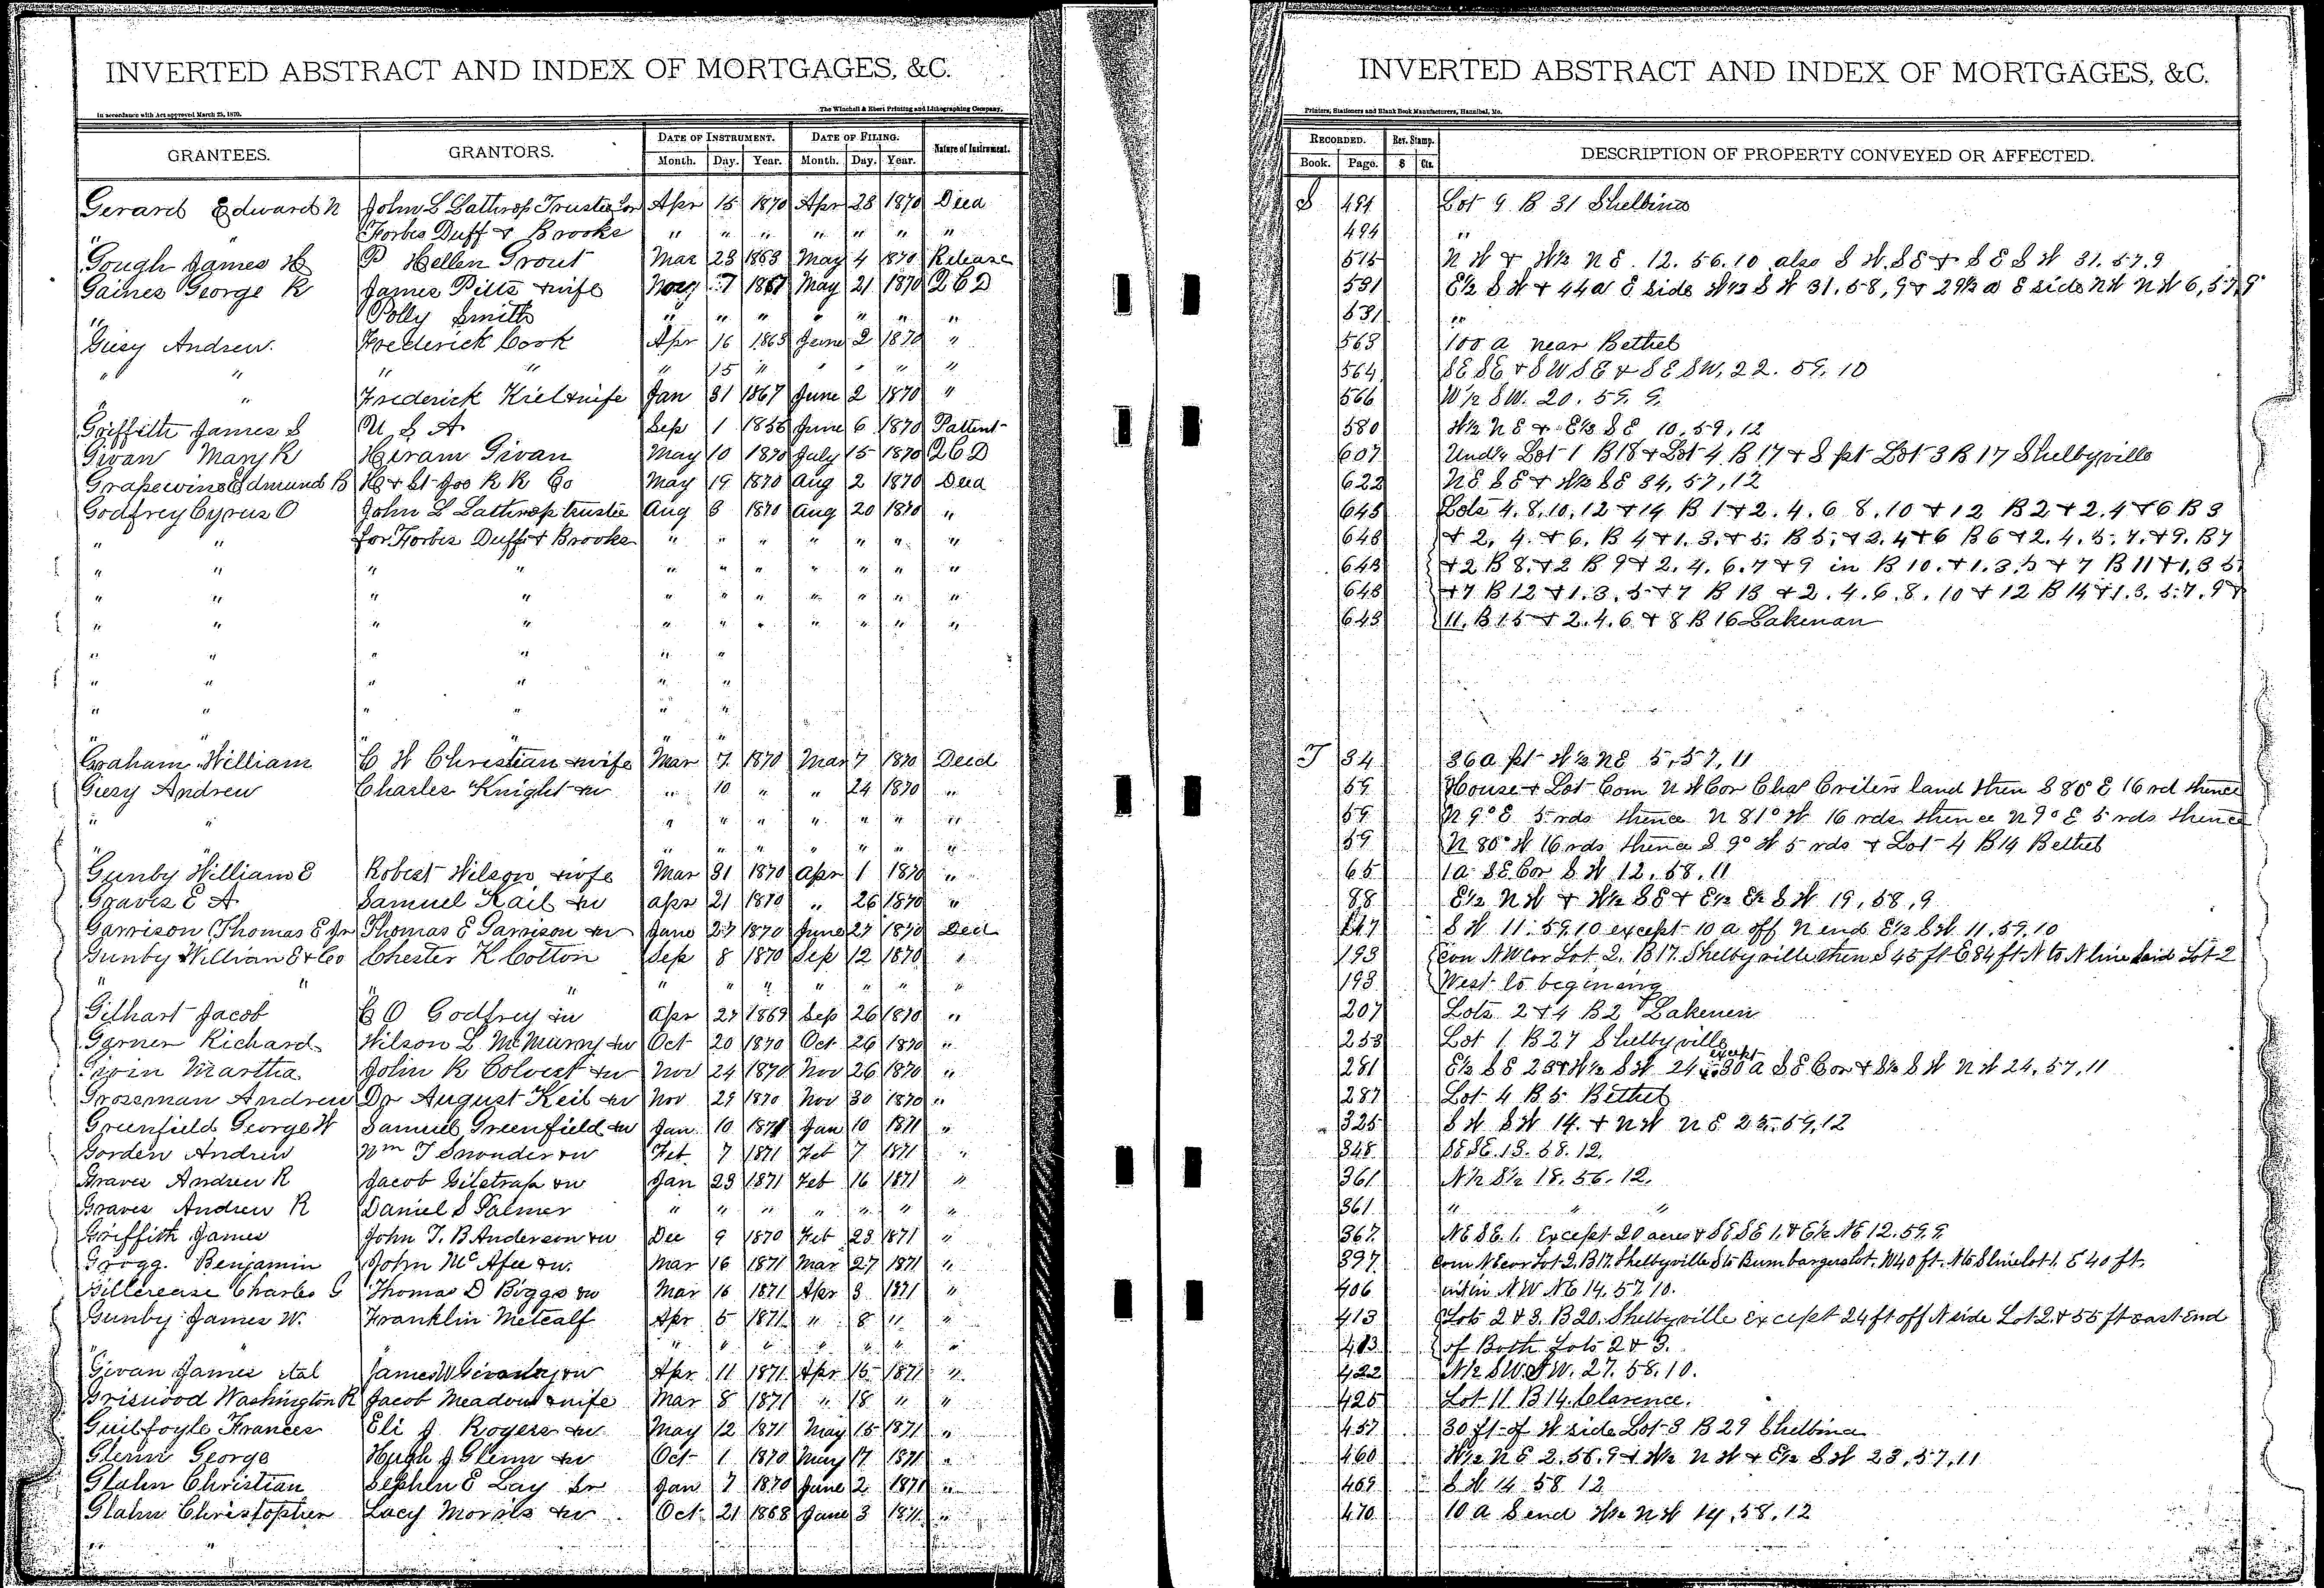 INVERTED ABSTRACT AND INDEX OF MORTGAGES, &C.
In accordance with Act approved March 25, 1870. The Winchell & Ebert Printing and Lithographing Company,
GRANTEES. GRANTORS. DATE OF INSTRUMENT. DATE OF FILING. Nature of Instrument.
Month. Day. Year. Month. Day. Year.
Gerard Edward N John L Lathrop Trustee for Apr 15 1870 Apr 28 1870 Deed
" " Forbes Duff & Brooks " " " " " " "
Gough James H P Hellen Grout Mar 23 1868 May 4 1870 Release
Gaines George R James Pitts & wife 7 1867 May 21 1870 Q C D
" Polly Smith " " " " " " "
Giesy Andrew. Frederick Cook Apr 16 1863 June 2 1870 "
" " " " " 15 " " " " "
" " Frederick Kiel & wife Jan 31 1867 June 2 1870 "
Griffith James S U S A Sep 1 1856 June 6 1870 Pattent
Givan Mary R Hiram Givan May 10 1870 July 15 1870 Q C D
Grapewine Edmund B H & St Joe R R Co May 19 1870 Aug 2 1870 Deed
Godfrey Cyrus O John L Lathrop trustee Aug 8 1870 Aug 20 1870 "
" " for Forbes Duff & Brooks " " " " " " "
" " " " " " " " " " "
" " " " " " " " " " "
" " " " " " " " " " "
" " " " " "
" " " " " "
" " " " " "
" " " " " "
Graham William C H Christian & wife Mar 7 1870 Mar 7 1870 Deed
Giesy Andrew Charles Knight & w " 10 " " 24 1870 "
" " " " " " " " "
" " " " " " " " "
Gunby William E Robert Wilson & wife Mar 31 1870 Apr 1 1870 "
Graves E A Samuel Kail & w Apr 21 1870 " 26 1870 "
Garrison Thomas E Jr Thomas E Garrison & w June 27 1870 June 27 1870 Deed
Gunby William E & Co Chester K Cotton Sep 8 1870 Sep 12 1870 "
" " " " " " " " " "
Gilhart Jacob C O Godfrey & w Apr 27 1869 Sep 26 1870 "
Garner Richard Wilson L McMurry & w Oct 20 1870 Oct 26 1870 "
Givin Martha John R Colvert & w Nov 24 1870 Nov 26 1870 "
Grossman Andrew Dr August Keil & w Nov 29 1870 Nov 30 1870 "
Greenfield George W Samuel Greenfield & w Jan 10 1871 Jan 10 1871 "
Gorden Andrew Wm T & w Feb 7 1871 Feb 7 1871 "
Graves Andrew R Jacob Gilstrap & w Jan 23 1871 Feb 16 1871 "
Graves Andrew R Daniel S Palmer " " " " " " "
Griffith James John T. B Anderson & w Dec 9 1870 Feb 23 1871 "
Grogg. Benjamin John McAfee & w. Mar 16 1871 Mar 27 1871 "
Gillcrease Charles G Thomas D Boggs & w Mar 16 1871 Apr 3 1871 "
Gunby James W. Franklin Metcalf Apr 5 1871 " 8 " "
" " " " " " " "
Givan James etal James W & w Apr 11 1871 Apr 15 1871 "
Griswood Washington R Jacob Meadows & wife Mar 8 1871 " 18 " "
Guilfoyle Frances Eli J Rogers & w May 12 1871 May 15 1871 "
Glenn George Hugh J Glenn & w Oct 1 1870 May 17 1871 "
Glahn Christian Stephen E Lay Sr Jan 7 1870 June 2 1871 "
Glahn Christopher Lacy Morris & w Oct 21 1868 June 3 1871 "
" "
INVERTED ABSTRACT AND INDEX OF MORTGAGES, &C.
Printers, Stationers and Blank Book Manufacturers, Hannibal, Mo.
RECORDED. Rev. Stamp. DESCRIPTION OF PROPERTY CONVEYED OR AFFECTED.
Book. Page. $ Cts.
S 494 Lot 9 B 31 Shelbina
494 "
515 N W & W½ N E. 12. 56. 10 also S W. S E & S E S W 31. 57. 9
531 E½ S W & 44 a E side W½ S W 31. 58, 9 & 29½ a E side N W N W 6, 57, 9
531 "
563 100 a near Bethel
564 S E S E & S W S E & S E S W, 22. 59, 10
566 W½ S W. 20. 59. 9.
580 W½ N E & E½ S E 10. 59, 12
607 Und¼ Lot 1 B 18 & Lot 4 B 17 & S pt Lot 3 B 17 Shelbyville
622 N E S E & W½ S E 34, 57, 12
648 Lots 4. 8, 10, 12 & 14 B 1 & 2. 4. 6 8. 10 & 12 B 2 & 2. 4 & 6 B 3
648 & 2, 4. & 6. B 4 & 1. 3. & 5. B 5, & 2. 4 & 6 B 6 & 2. 4. 5. 7. & 9. B 7
648 & 2 B 8. & 2 B 9 & 2. 4. 6. 7 & 9 in B 10. & 1. 3. 5 & 7 B 11 & 1, 3 5.
648 & 7 B 12 & 1. 3. 5 & 7 B 13 & 2. 4. 6. 8. 10 & 12 B 14 & 1. 3. 5. 7. 9 &
648 11. B 15 & 2. 4. 6 & 8 B 16 Lakenan
T 34 36 a pt W½ N E 5, 57, 11
59 House & Lot Com N W Cor Chas Criters land then S 80° E 16 rd thence
59 N 9° E 5 rds thence N 81° W 16 rds thence N 9° E 5 rds thence
59 N 80° W 16 rds thence S 9° W 5 rds & Lot 4 B 14 Bethel
65 1 a S E Cor S W 12. 58. 11
88 E½ N W & W½ S E & E½ E½ S W 19, 58, 9
117 S W 11. 59. 10 except 10 a off N end E½ S W 11. 59. 10
193 Com N W Cor Lot 2. B 17. Shelbyville then S 45 ft E 84 ft N to N line said Lot 2
193 West to begining
207 Lots 2 & 4 B 2 Lakenen
253 Lot 1 B 27 Shelbyville
281 E½ S E 23 & W½ S W 24 except 30 a S E Cor & S½ S W N W 24, 57, 11
287 Lot 4 B 5 Bethel
325 S W S W 14. & N W N E 23. 59, 12
348 S E S E. 13. 58. 12.
361 N½ S½ 18. 56. 12.
361 " " "
367 N E S E. 1. Except 20 acres & S E S E 1. & E½ N E 12. 59. 9.
397 Com N E cor Lot 2. B 17. Shelbyville S to Bumbargers Lot. W 40 ft. N to S line lot 1. E 40 ft.
406 N W N E 14. 57. 10.
413 Lots 2 & 3. B 20. Shelbyville except 24 ft off N side Lot 2. & 55 ft east End
413 of Both Lots 2 & 3.
422 N½ S W. S W. 27. 58. 10.
425 Lot 11. B 14. Clarence.
457 30 ft of W side Lot 3 B 29 Shelbina
460 W½ N E 2. 56. 9 & W½ N W & E½ S W 23, 57, 11
469 S W 14 58 12
470 10 a S end W½ N W 14, 58. 12